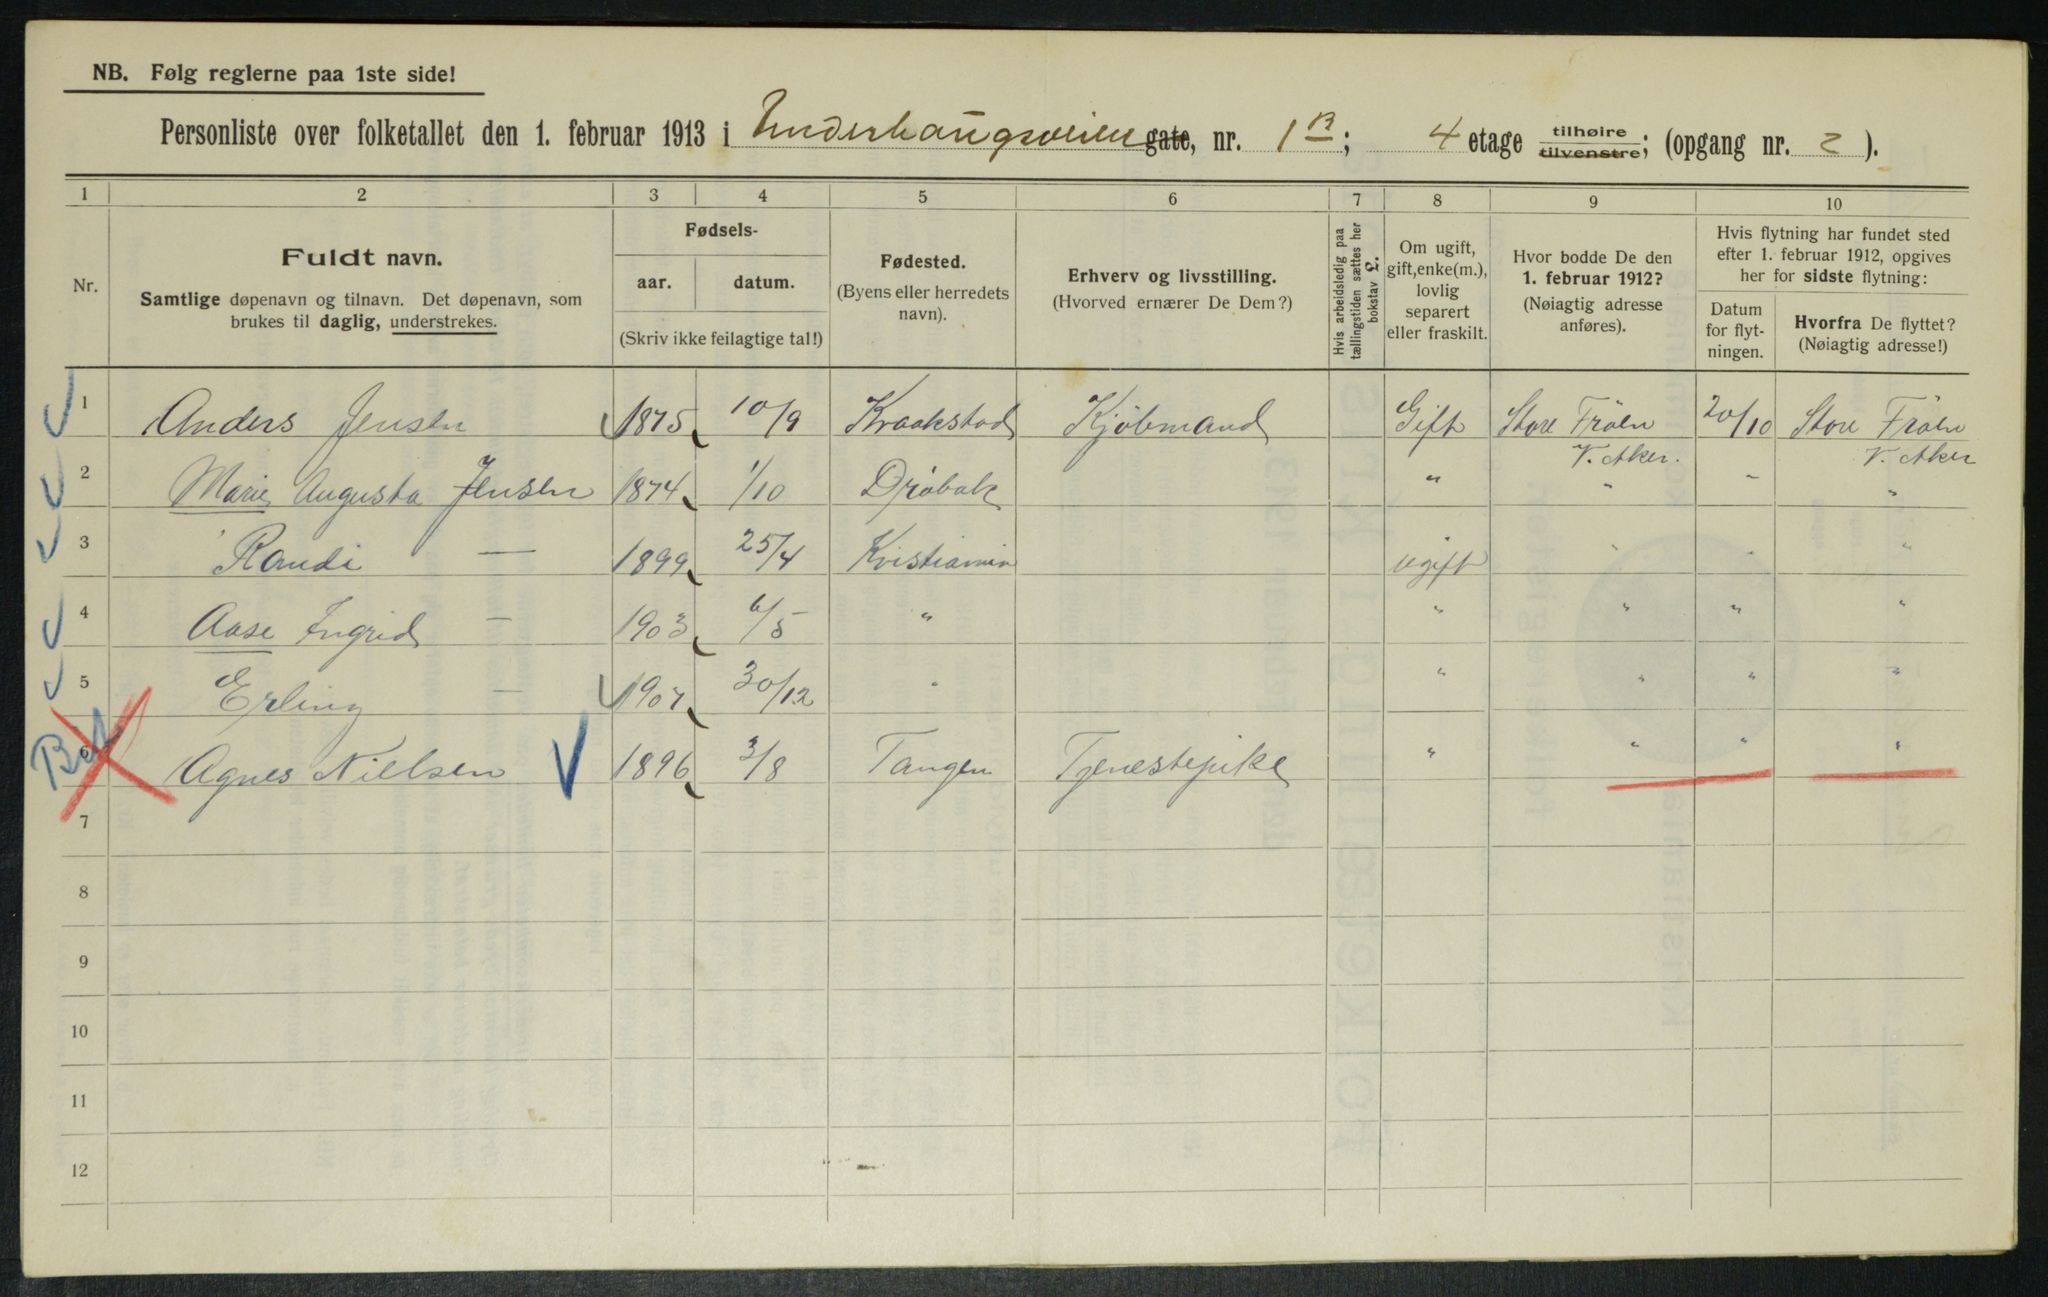 NB. Følg reglerne paa 1ste side!
Personliste over folketallet den 1. februar 1913 i Underhaugsveien gate, nr. 1 B; 4 etage tilhøire tilvenstre; (opgang nr. 2 ).
1 2 3 4 5 6 7 8 9 10
Nr.
Fuldt navn.
Samtlige døpenavn og tilnavn. Det døpenavn, som
brukes til daglig, understrekes.
Fødsels-
aar. datum.
(Skriv ikke feilagtige tal!)
Fødested.
(Byens eller herredets
navn).
Erhverv og livsstilling.
(Hvorved ernærer De Dem?)
Hvis arbeidsledig paa
tællingstiden sættes her
bokstav L.
Om ugift,
gift, enke(m.),
lovlig
separert
eller fraskilt.
Hvor bodde De den
1. februar 1912?
(Nøiagtig adresse
anføres).
Hvis flytning har fundet sted
efter 1. februar 1912, opgives
her for sidste flytning:
Datum
for flyt-
ningen.
Hvorfra De flyttet?
(Nøiagtig adresse!)
1 Anders Jensen 1875 10/9 Kraakstad Kjöbmand Gift Store Fröen 20/10 Store Fröen
V. Aker. V. Aker
2 Marie Augusta Jensen 1874 1/10 Dröbak " " " "
3 Randi — 1899 25/4 Kristiania ugift " " "
4 Aase Ingrid — 1903 6/5 " " " " "
5 Erling — 1907 30/12 " " " " "
6 Agnes Nielsen 1896 3/8 Tangen Tjenestepike " " " "
7
8
9
10
11
12